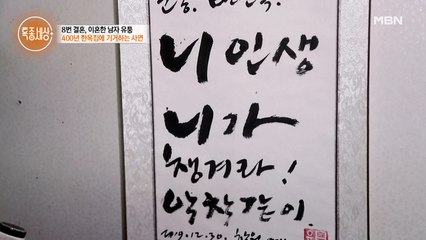 특종세상
8번 결혼, 이혼한 남자 유퉁
400년 한옥집에 기거하는 사연
MBN
니 인생
니가
챙겨라!
악착같이.
2019.12.30.